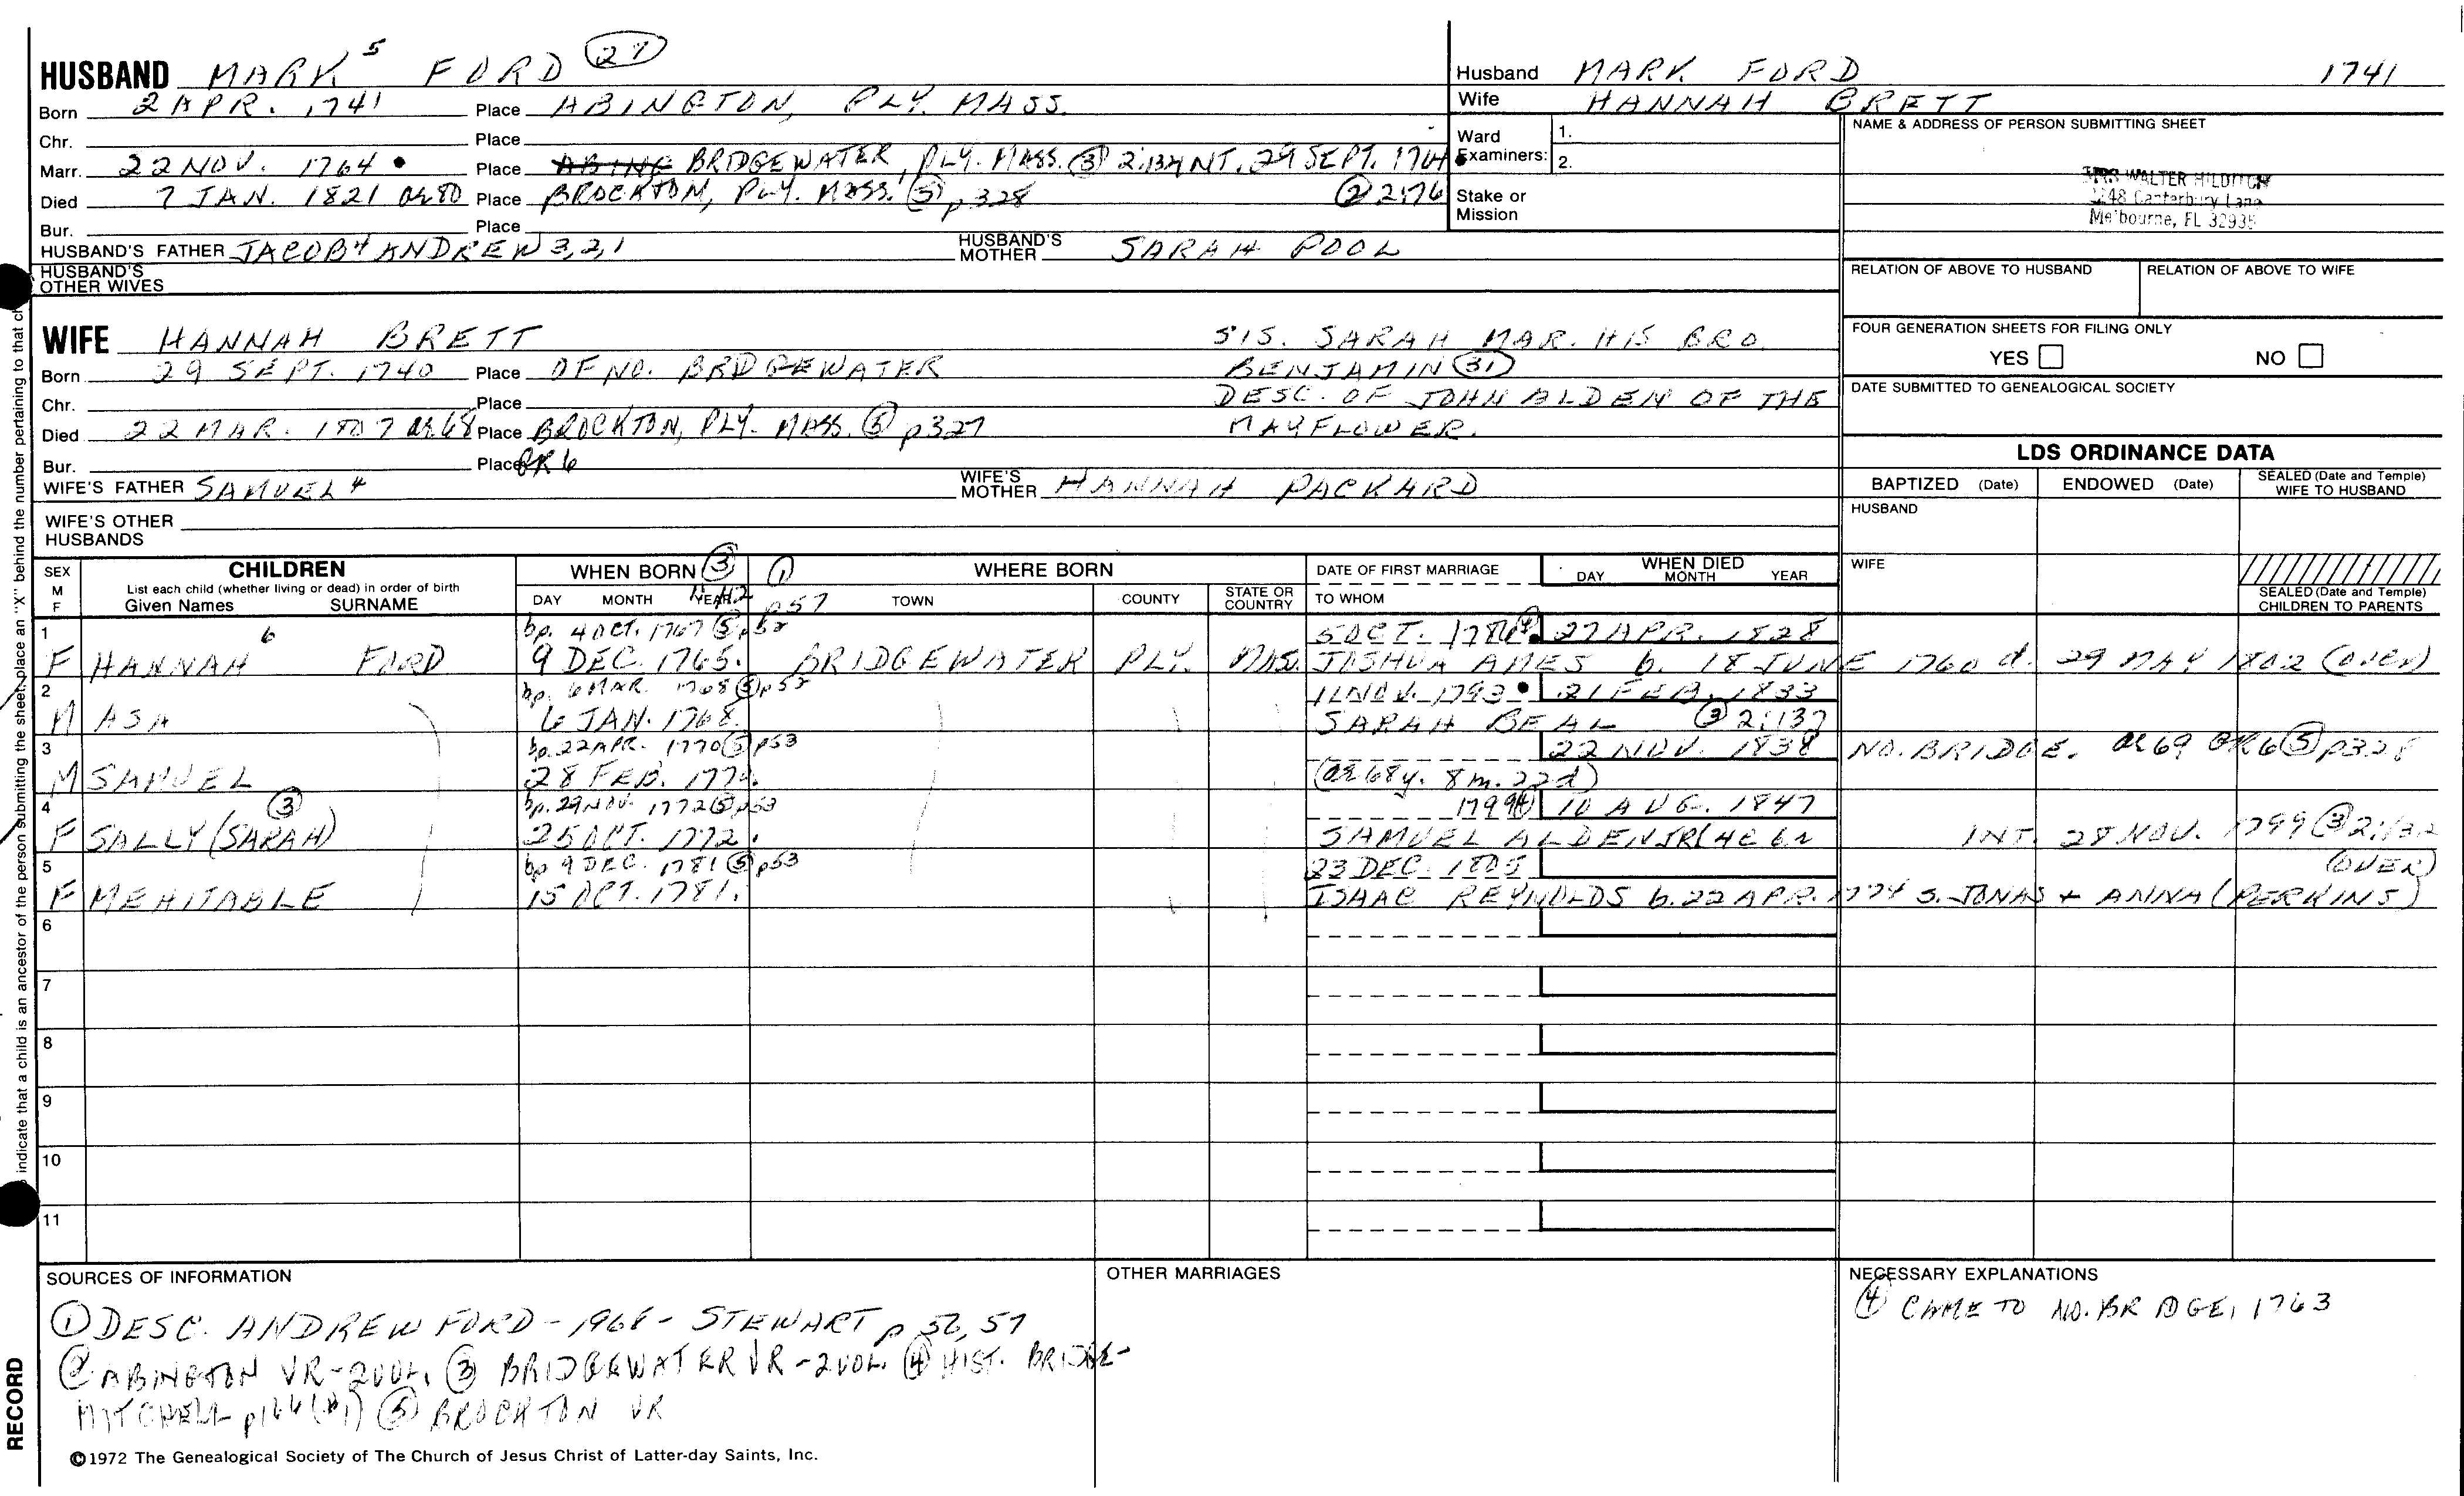 HUSBAND MARK 5 FORD 27
Born 2 APR. 1741 Place ABINGTON, PLY. MASS.
Chr. Place
Marr. 22 NOV. 1764 • Place BRIDGEWATER, PLY. MASS. ③ 2:134 INT. 29 SEPT. 1764
Died 7 JAN. 1821 ae 80 Place BROCKTON, PLY. MASS. ⑤ p 328 ② 2:76
Bur. Place
HUSBAND'S FATHER JACOB 4 ANDREW 3,2,1 HUSBAND'S MOTHER SARAH POOL
HUSBAND'S OTHER WIVES
Husband MARK FORD 1741
Wife HANNAH BRETT
Ward Examiners: 1.
2.
Stake or Mission
NAME & ADDRESS OF PERSON SUBMITTING SHEET
MRS WALTER HILDITCH
Canterbury Lane
Melbourne, FL 32935
RELATION OF ABOVE TO HUSBAND RELATION OF ABOVE TO WIFE
FOUR GENERATION SHEETS FOR FILING ONLY
YES NO
DATE SUBMITTED TO GENEALOGICAL SOCIETY
WIFE HANNAH BRETT SIS. SARAH MAR. HIS BRO.
Born 29 SEPT. 1740 Place OF NO. BRIDGEWATER BENJAMIN 31
Chr. Place DESC. OF JOHN ALDEN OF THE
Died 22 MAR. 1807 ae 68 Place BROCKTON, PLY. MASS. ⑤ p 327 MAYFLOWER.
Bur. Place GR 6
WIFE'S FATHER SAMUEL 4 WIFE'S MOTHER HANNAH PACKARD
WIFE'S OTHER HUSBANDS
LDS ORDINANCE DATA
BAPTIZED (Date) ENDOWED (Date) SEALED (Date and Temple) WIFE TO HUSBAND
HUSBAND
WIFE
SEALED (Date and Temple) CHILDREN TO PARENTS
SEX M F
CHILDREN
List each child (whether living or dead) in order of birth
Given Names SURNAME
WHEN BORN ③
DAY MONTH YEAR
① p 57 WHERE BORN
TOWN COUNTY STATE OR COUNTRY
DATE OF FIRST MARRIAGE
TO WHOM
WHEN DIED
DAY MONTH YEAR
1 6 bp. 4 OCT. 1767 ⑤ p 52 5 OCT. 27 APR. 1828
F HANNAH FORD 9 DEC. 1765. BRIDGEWATER PLY. MAS. JOSHUA AMES b. 18 JUNE 1760 d. 29 MAY 1802 (OVER)
2 bp. 6 MAR. 1768 ⑤ p 52 11 NOV. 1793 • 21 FEB. 1833
M ASA 6 JAN. 1768. SARAH BEAL ③ 2:137
3 bp. 22 APR. 1770 ⑤ p 53 22 NOV. 1838 NO. BRIDGE. ae 69 GR 6 ⑤ p 328
M SAMUEL 28 FEB. 1770. (ae 68 y. 8 m. 22 d)
4 ③ bp. 29 NOV. 1772 ⑤ p 53 1799 ④ 10 AUG. 1847
F SALLY (SARAH) 25 OCT. 1772. SAMUEL ALDEN JR INT. 28 NOV. 1799 ③ 2:132
(OVER)
5 bp 9 DEC. 1781 ⑤ p 53 23 DEC. 1805
F MEHITABLE 15 OCT. 1781. ISAAC REYNOLDS b. 22 APR. 1774 S. JONAS + ANNA (PERKINS)
6
7
8
9
10
11
SOURCES OF INFORMATION
① DESC. ANDREW FORD - 1968 - STEWART p 52, 57
② ABINGTON VR - 2 VOL. ③ BRIDGEWATER VR - 2 VOL. ④ HIST. BRIDGE-
MITCHELL ⑤ BROCKTON VR
OTHER MARRIAGES
NECESSARY EXPLANATIONS
④ CAME TO NO. BRIDGE, 1763
©1972 The Genealogical Society of The Church of Jesus Christ of Latter-day Saints, Inc.
indicate that a child is an ancestor of the person submitting the sheet, place an "X" behind the number pertaining to that
RECORD